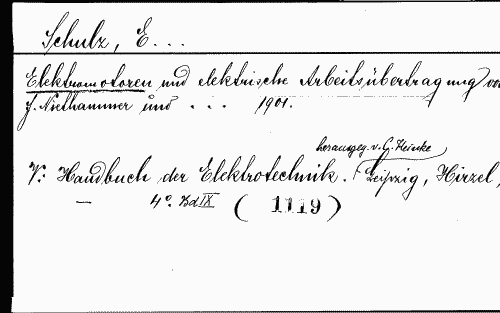 Schulz, E...
Elektromotoren und elektrische Arbeitsübertragung von
F. Niethammer und ... 1901.
herausgeg. v. C. Heinke
V: Handbuch der Elektrotechnik. Leipzig, Hirzel,
— 4°. Bd IX (1119)